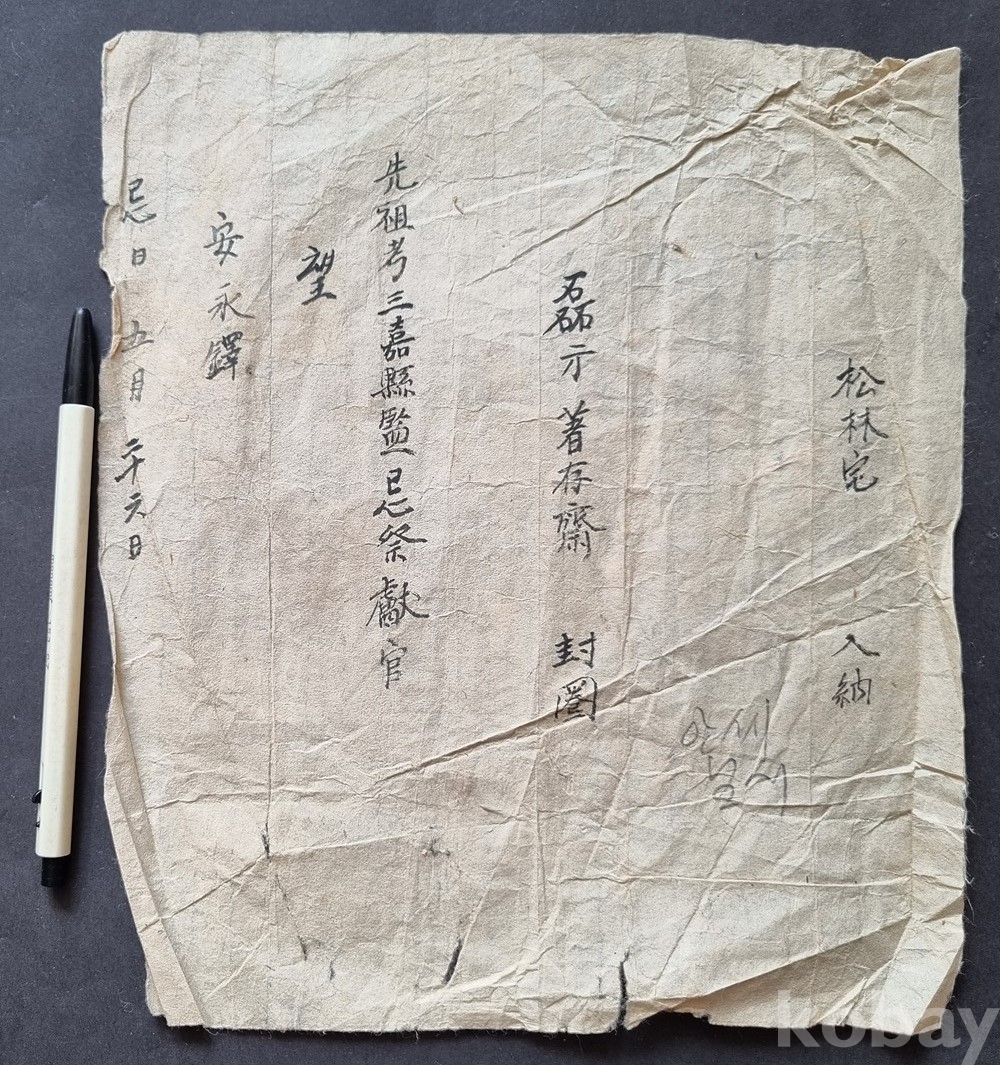 松林宅 入納
안씨
보시
磊示 著存齋 封圈
先祖考三嘉縣監忌祭獻官
望
安永鐸
忌日 五月 二十六日
kobay